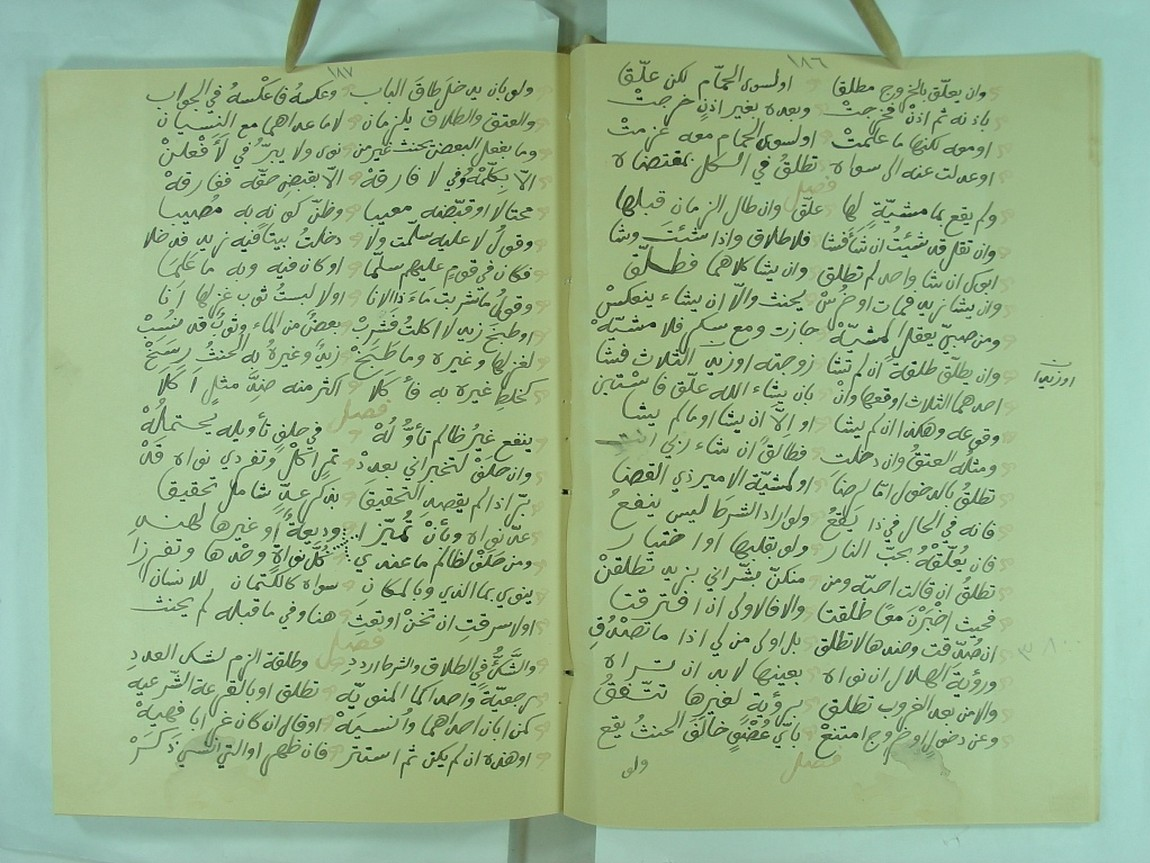 ١٨٦
وان يعلّق بالخروج مطلقا اولسوى الحمّام لكن علّقا
باذنه ثم اذن فخرجتْ وبعده بغير اذن خرجتْ
اومعه لكنها ما علمتْ اولسوى الحمام معه عزمتْ
اوعدلت عنه الى سواه تطلقُ في الكل بمقتضاه
فصل
ولم يقع بما مشيّةٍ لها علّق وان طال الزمان قبلها
وان تقل قد شئتُ ان شأ فشا فلا طلاق واذا شئت وشا
ابوك ان شا واحد لم تطلق وان يشا كلاهما فطلّق
وان يشا زيد فمات اوخُرسْ يحنث والّا ان يشاء ينعكسْ
ومن صبيّ يعقل المشيّهْ جازت ومع سكر فلا مشيّهْ
وان يطلّق طلقةً ان لم تشا زوجته اوزيد الثلاث فشا
اوزيدا
احدهما الثلاث اوقعها وانْ بان يشاء الله علّق فاستبن
وقوعه وهكذا ان لم يشا او الّا ان يشا اومالم يشا
ومثله العتق وان دخلت فطالقٌ ان شاء ربي
تطلقُ بالدخول امّا لرضا اولمشيّة الامير ذي القضا
فانه في الحال في ذا يَقَعُ ولو اراد الشرط ليس ينفعُ
فان يُعلّقْهُ بحبّ النار ولو بقلبها او اختيار
تطلقُ ان قالت احبّه ومن منكنّ بشّراني بزيد تطلقنْ
فحيث اخبرْنَ معًا طلقتا والا فالاولى ان افترقتا
ان صدّقت وضدها لا تطلق بل اولى من لي اذا ما تصدُق
ورؤية الهلال ان نواه بعينها لابد ان تراه
والا من بعد الغروب تطلق برؤية لغيرها تتّفقُ
وعن دخول اوخروج امتنعْ بايّ عُضْوٍ خالَفَ الحنثُ يقع
فصل
ولو
١٨٧
ولو بان يدخل طاقَ الباب وعكسهُ فاعكسهُ في الجواب
والعتق والطلاق يلزمان لا ما عداهما مع النسيان
وما بفعل البعض يحنث غير من نوى ولا يبرّ في لأفعلنْ
الّا بكلّهْ وفي لا فارقهْ الّا بقبض حقّه ففارقهْ
محتالا اوقبّضه معيبا وظنّ كونه به مُصيبا
وقولُ لا عليه سلّمت ولا دخلتُ بيتا فيه زيد فدخلا
فكان في قومٍ عليهم سلّما اوكان فيه وبه ما عَلِمَا
وقولُ ما شربت مَاءَ ذا الانا اولا لبستُ ثوب غزلها انا
اوطبخَ زيد لا اكلتُ فشربْ بعضٌ من الماء وثوبٌ قد نُسبْ
لغزلها وغيره وما طَبَخْ زيدٌ وغيرهُ به الحنثُ رسَخْ
كخلطِ غيره به فأكلا اكثر منه ضدَّ مثلٍ أكلا
فصل
ينفع غيرُ ظالم تأوّلُهْ في حلفٍ تأويله يحتملُهْ
وان حلفْ لتخبراني بعددْ تمرٍ اكلْ وتفردي نواه قَدْ
برّ اذا لم يقصد التحقيقا بذكر عدّ شامل تحقيقا
عدّ نواه وبأنْ تُميّزا كلَّ نواةٍ وحدها وتفرزا
ومن حلفْ لظالم ما عندي وديعةٌ أو غيرها لهند
ينوي بما الذي وبالمكان سواه كالكتمان للانسان
اولا سرقتِ ان تخنْ اوبعتِ هنا وفي ما قبله لم يحنث
فصل
والشَّكُّ في الطلاق والشرط ارددِ وطلقة الزم لشك العدد
رجعيّةً واحدا كما المنويّه تطلق اوبالقرعة الشرعيه
كمن ابان احداهما وأُنسيهْ اوقال ان كان غرابا فهيهْ
اوهذه ان لم يكن ثم استتر فان ظهر اوالتي انسي ذكرْ